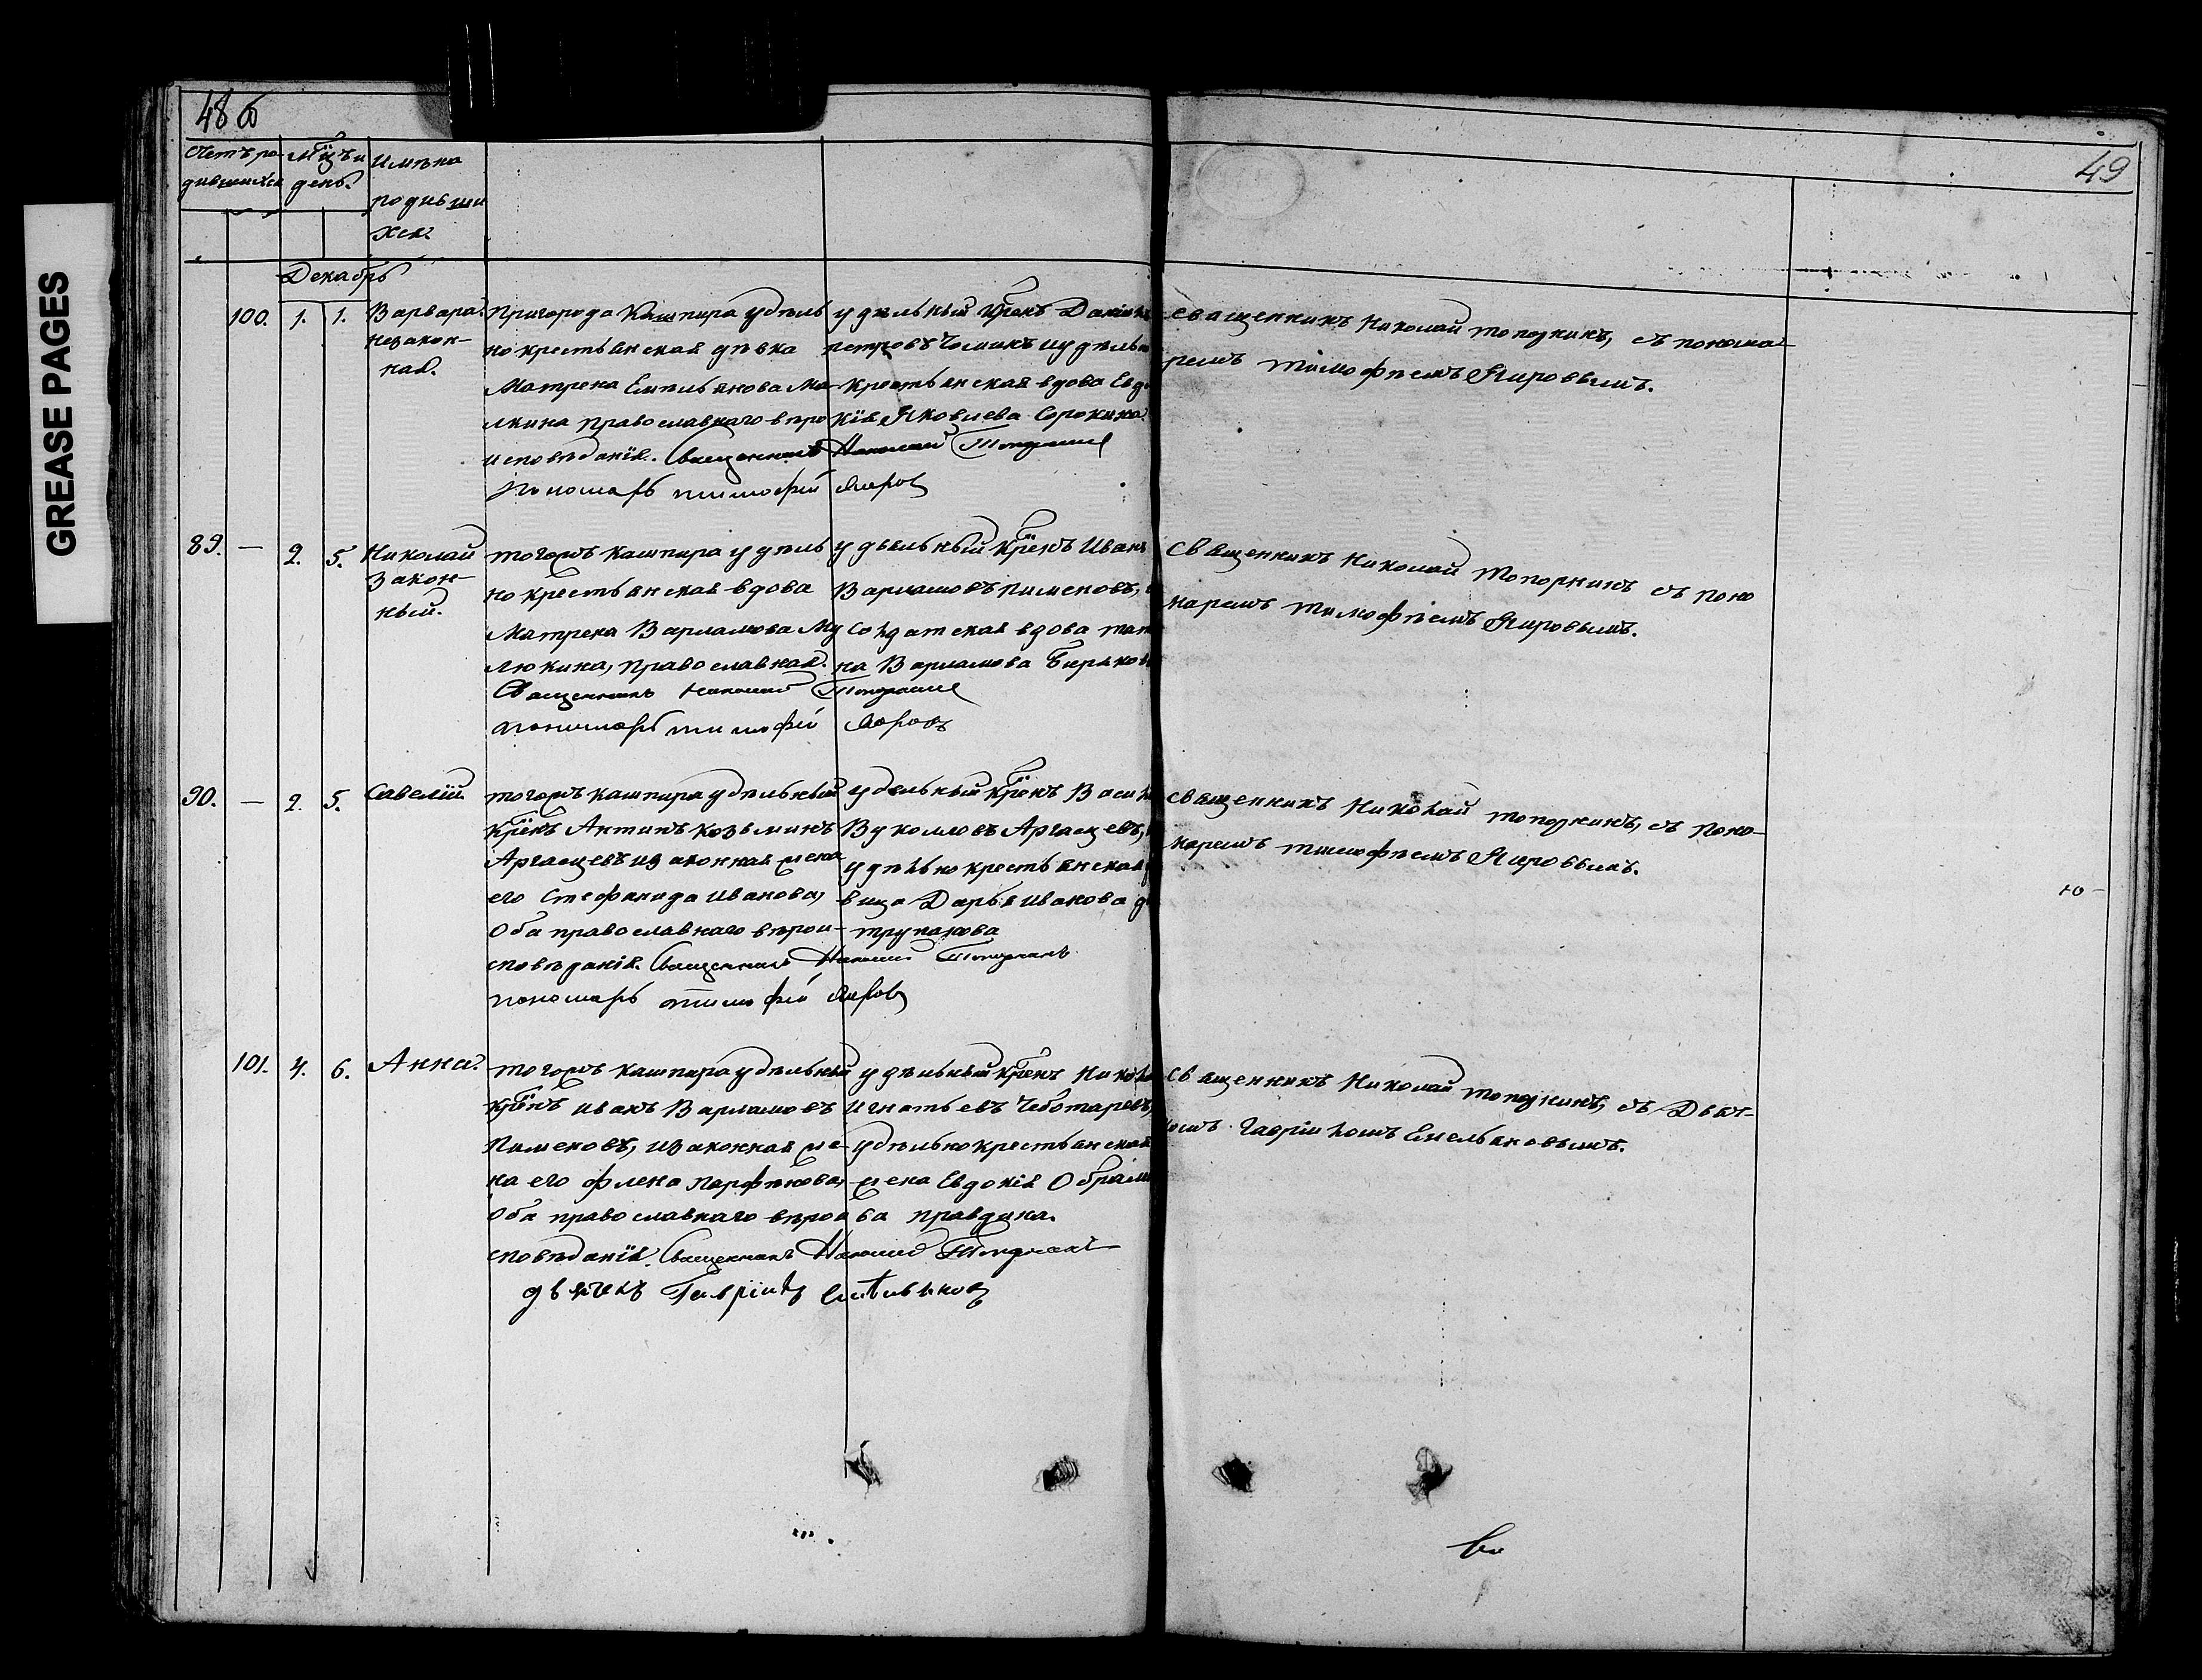 GREASE PAGES
48 об
49
Счетъ ро-
дившихся
Мцъ и
день.
Имѣна
родивши
хся.
Декабрь
100. 1. 1.
Варвара.
незакон-
ная.
Пригорода Кашпира удѣль
но крестьянская дѣвка
Матрена Емельянова Ма-
лкина православнаго вѣро
исповѣданія. Священникъ Николай Топорнинъ
Пономарь Тимофей Яиров
удѣльный крнъ Данiил
Петровъ Чоминъ и удѣльн
крестьянская вдова Евдо
кiя Яковлева Сорокина.
священникъ Николай Топорнинъ, съ понома-
ремъ Тимофѣемъ Яировымъ.
89. — 2. 5.
Николай
закон-
ный.
тогожъ Кашпира удѣль
но крестьянская вдова
Матрена Варламова Му
люкина, православная.
Священникъ Николай Топорнинъ
пономарь Тимофей Яировъ
удѣльный крѣнъ Иванъ
Варламовъ Пименовъ,
Солдатская вдова Тать
на Варламова Бирякова
Священникъ Николай Топорнинъ съ поно
маремъ Тимофѣемъ Яировымъ.
90. — 2. 5.
Савелiй.
тогожъ Кашпира удѣльный
крѣнъ Антипъ Козьминъ
Аргасцевъ и законная жена
его Стефанида Иванова,
Оба православнаго вѣрои-
сповѣданiя. Священникъ Николай Топорнинъ
пономарь Тимофей Яиров
удѣльный крѣнъ Васил
Вуколовъ Аргасцевъ,
удѣльно крестьянская
вица Дарья Иванова
трупакова
Священникъ Николай Топорнинъ, съ поно-
маремъ Тимофѣемъ Яировымъ.
101. 4. 6.
Анна.
тогожъ Кашпира удѣльный
крѣнъ Иванъ Варламовъ
Пименовъ, и законная же-
на его Флена Парфенова,
Оба православнаго вѣрои
сповѣданiя. Священникъ Николай Топорнинъ
дьячекъ Гаврiилъ Емельянов
удѣльный крѣнъ Никола
Игнатьевъ Чеботаревъ,
удѣльно крестьянская
жена Евдокiя Обрамо
ва Правдина.
Священникъ Николай Топорнинъ, съ Дьяч-
комъ Гаврiиломъ Емельяновымъ.